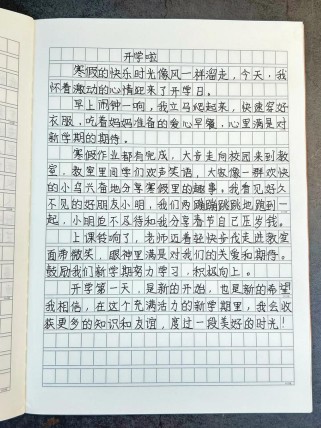 开学啦
寒假的快乐时光像风一样溜走，今天，我
怀着激动的心情迎来了开学日。
早上闹钟一响，我立马爬起来，快速穿好
衣服，吃着妈妈准备的爱心早餐，心里满是对
新学期的期待。
寒假作业都有完成，大步走向校园来到教
室，教室里同学们欢声笑语，大家像一群欢快
的小鸟兴奋地分享寒假里的趣事，我看见好久
不见的好朋友小明，我们两蹦蹦跳跳地跑到一
起，小明迫不及待和我分享春节自己压岁钱。
上课铃响了，老师迈着轻快步伐走进教室
面带微笑，眼神里满是对我们的关爱和期待。
鼓励我们新学期努力学习，积极向上。
开学第一天，是新的开始，也是新的希望
我相信，在这个充满活力的新学期里，我会收
获更多的知识和友谊，度过一段美好的时光！